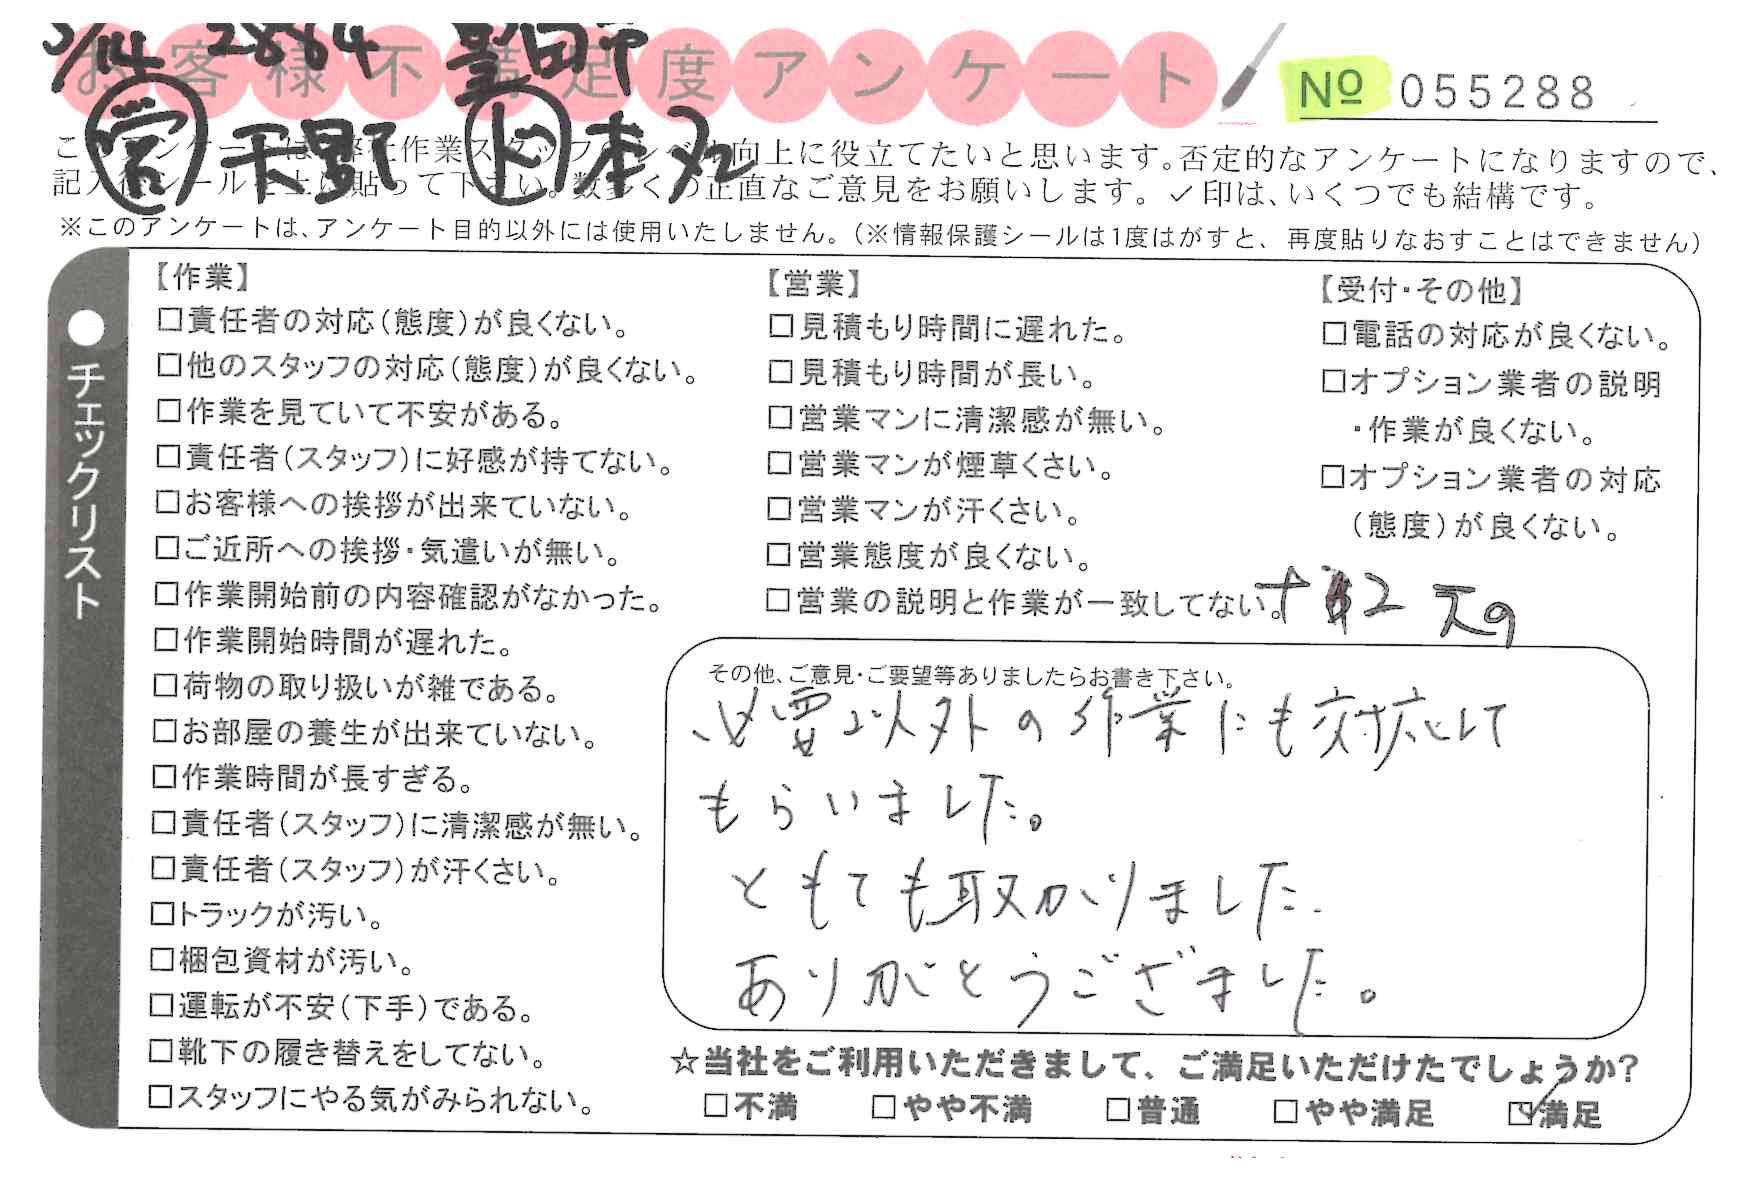 3/14 2884 豊田市
お客様不満足度アンケート
№ 055288
営 天野 ド 本丸
このアンケートは、弊社作業スタッフのレベル向上に役立てたいと思います。否定的なアンケートになりますので、
記入後シールを上に貼って下さい。数多くの正直なご意見をお願いします。✓印は、いくつでも結構です。
※このアンケートは、アンケート目的以外には使用いたしません。(※情報保護シールは1度はがすと、再度貼りなおすことはできません)
●チェックリスト
【作業】
□責任者の対応(態度)が良くない。
□他のスタッフの対応(態度)が良くない。
□作業を見ていて不安がある。
□責任者(スタッフ)に好感が持てない。
□お客様への挨拶が出来ていない。
□ご近所への挨拶・気遣いが無い。
□作業開始前の内容確認がなかった。
□作業開始時間が遅れた。
□荷物の取り扱いが雑である。
□お部屋の養生が出来ていない。
□作業時間が長すぎる。
□責任者(スタッフ)に清潔感が無い。
□責任者(スタッフ)が汗くさい。
□トラックが汚い。
□梱包資材が汚い。
□運転が不安(下手)である。
□靴下の履き替えをしてない。
□スタッフにやる気がみられない。
【営業】
□見積もり時間に遅れた。
□見積もり時間が長い。
□営業マンに清潔感が無い。
□営業マンが煙草くさい。
□営業マンが汗くさい。
□営業態度が良くない。
□営業の説明と作業が一致してない。
【受付・その他】
□電話の対応が良くない。
□オプション業者の説明
・作業が良くない。
□オプション業者の対応
(態度)が良くない。
その他、ご意見・ご要望等ありましたらお書き下さい。
必要以外の作業にも対応して
もらいました。
ともても取かりました.
ありがとうござました。
☆当社をご利用いただきまして、ご満足いただけたでしょうか?
□不満 □やや不満 □普通 □やや満足 ☑満足